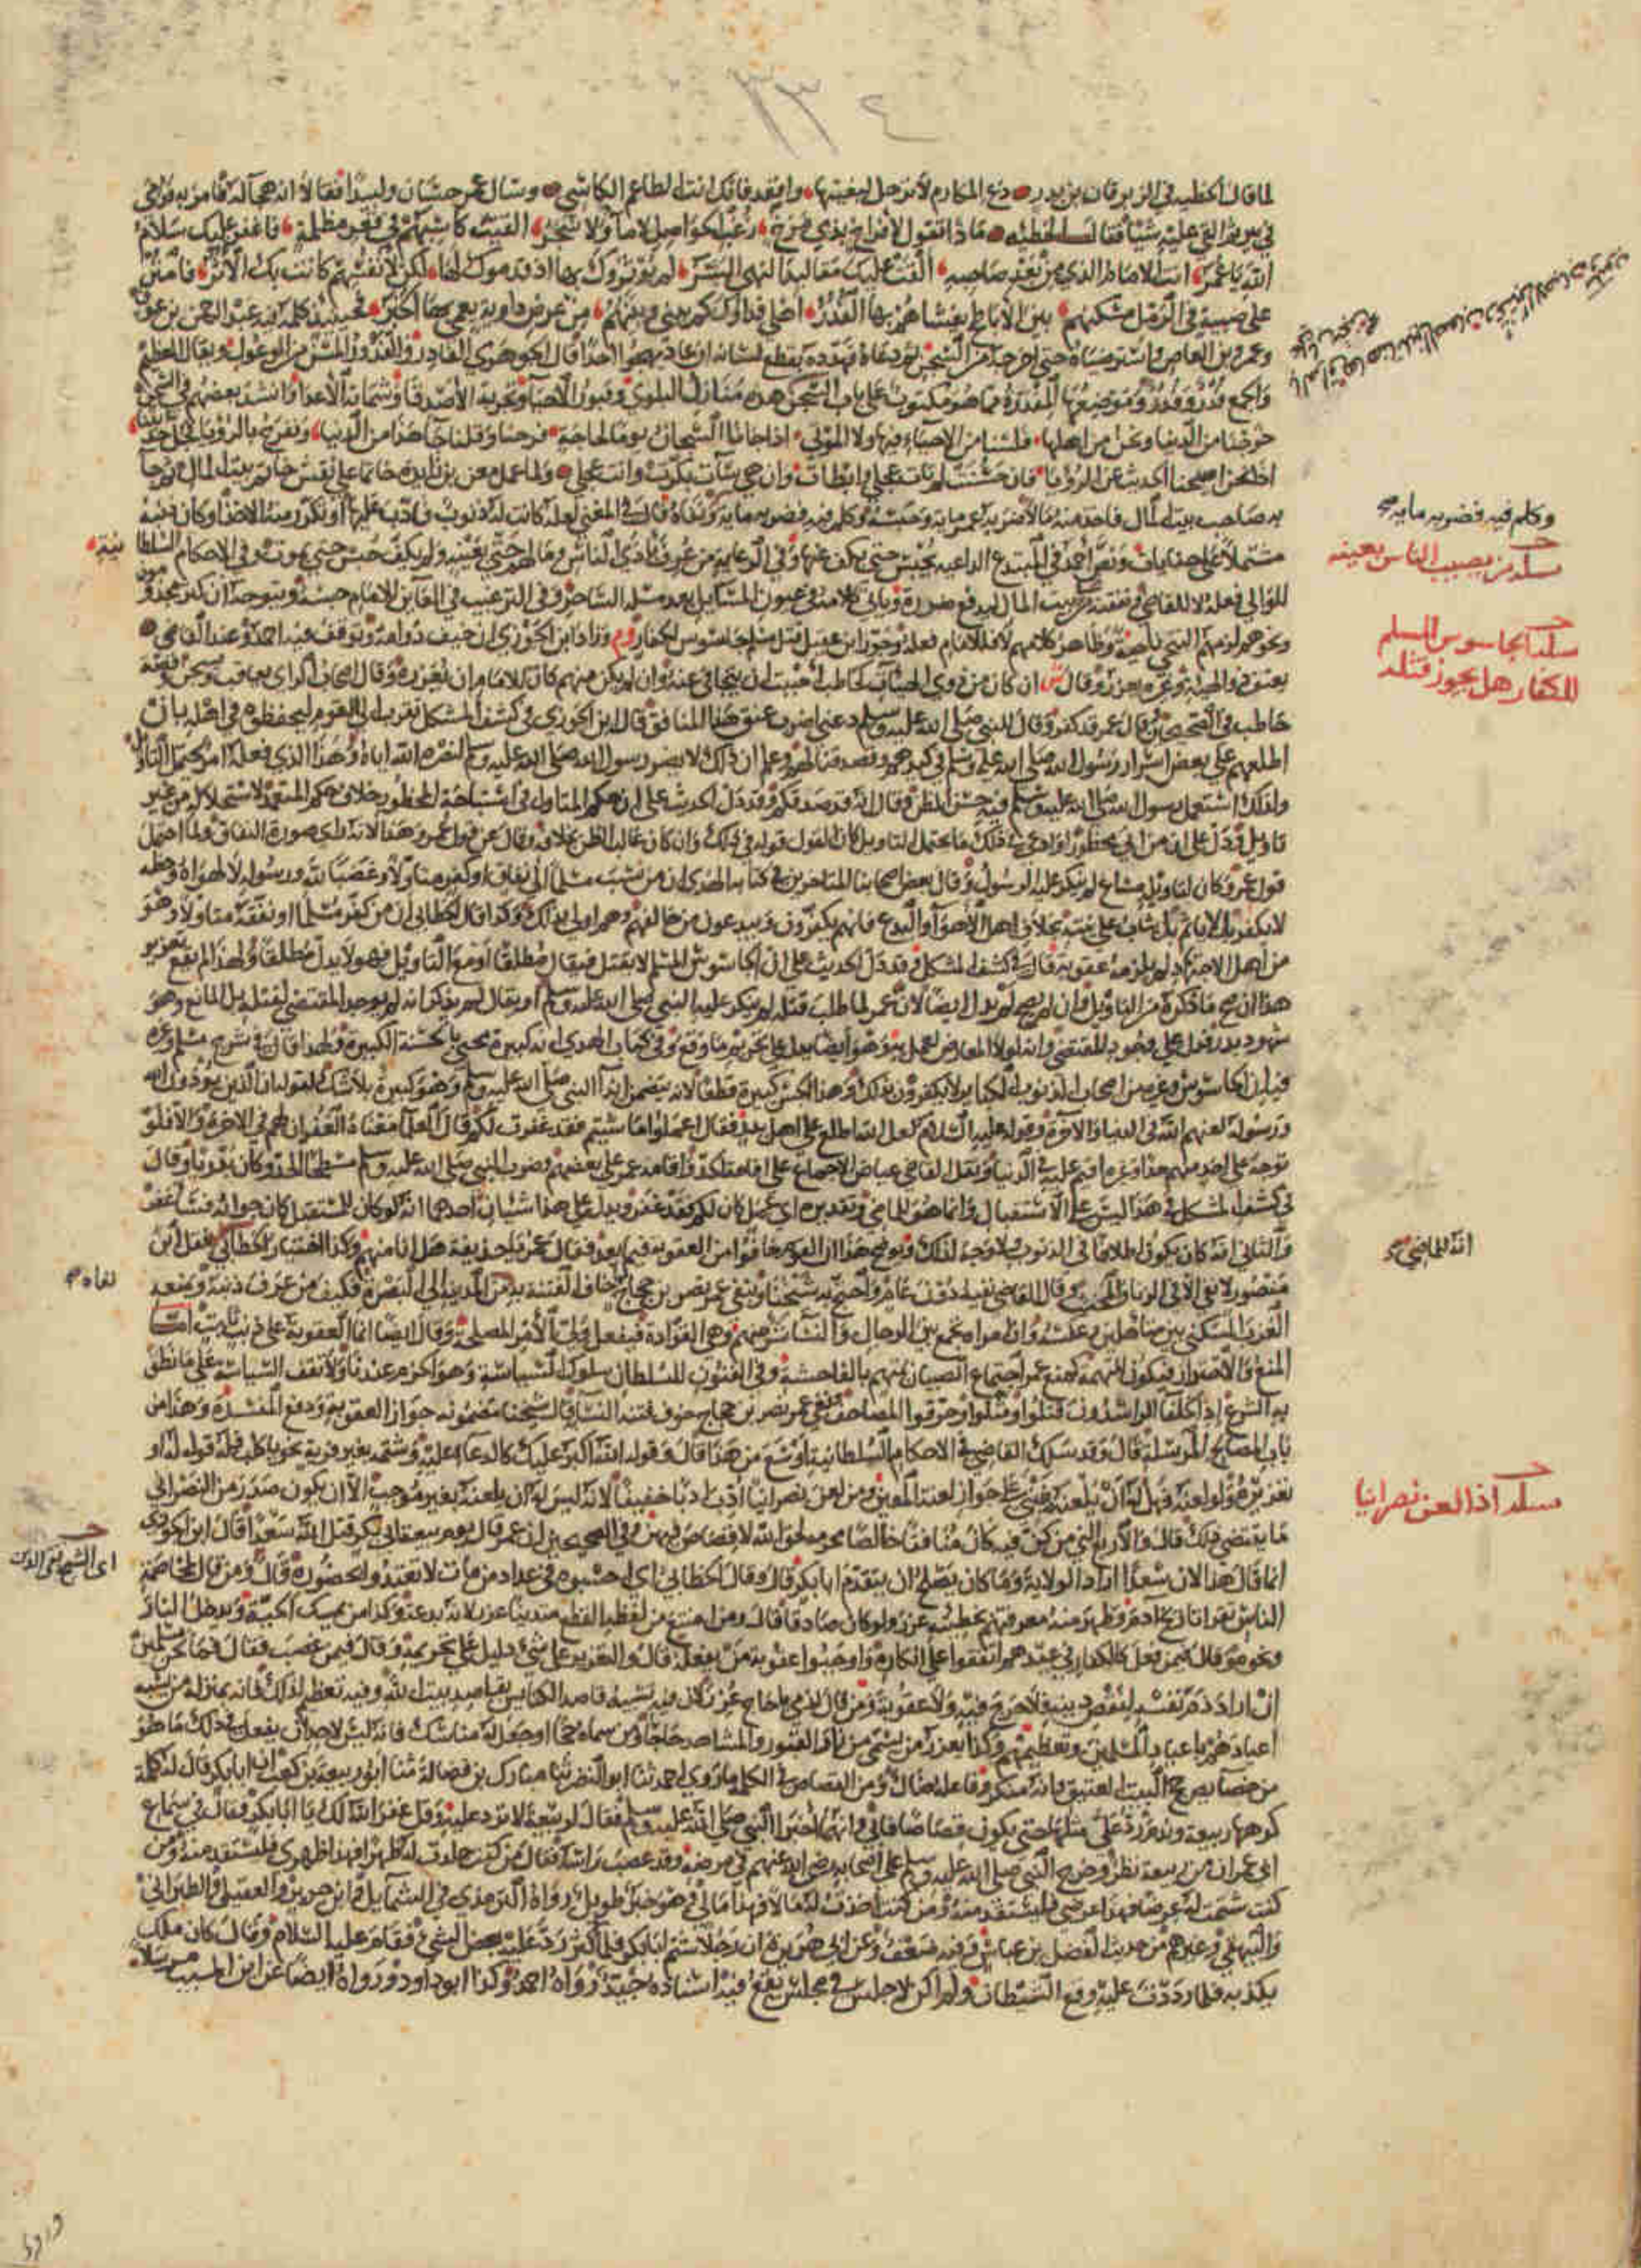 ٣٣٤
لما قال الحطيه في الزبرقان بن بدر دع المكارم لا ترحل لبغيتها واقعد فانك انت الطاعم الكاسي وسال عمر حسان ولبيدا فقالا انه هجا له فامر به فرمي
في بير ثم القي عليه شيئا فقال الحطئه ماذا تقول لافراخ بذي مرخ زغب الحواصل لا ما ولا شجر القيت كاسبهم في قعر مظلمة فاغفر عليك سلام
الله يا عمر انت الامام الذي من بعد صاحبه القت عليك مقاليد النهى البشر لم يوثروك بها اذ قدموك لها لكن لانفسهم كانت بك الاثر فامنن
على صبية في الرمل مسكنهم بين الاباطح يغشاهم بها القدر اهلي فداوك كم بيني وبينهم من عرض داوية يعمى بها الخبر فحينئذ كلمه فيه عبد الرحمن بن عوف
وعمرو بن العاص واسترضياه حتى اخرجه من السجن ثم دعاه فهدده بقطع لسانه ان عاد يهجو احدا قال الجوهري الفادر والفدور المسن من الوعول ويقال العظيم
والجمع فدر وفدور وموضعها المفدرة مما هو مكتوب على باب السجن هذه منازل البلوى وقبور الاحيا وتجربة الاصدقا وشماتة الاعدا وانشد بعضهم في السجن
خرجنا من الدنيا ونحن من اهلها فلسنا من الاحياء فيها ولا الموتى اذا جانا السجان يوما لحاجة فرحنا وقلنا جا هذا من الدنيا ونفرح بالرؤيا فجل حديثنا
اذا نحن اصبحنا الحديث عن الرؤيا فان حسنت لم تات عجلى وابطات وان هي سات بكرت واتت عجلى ولما عمل معن بن زايدة خاتما على نقش خاتم بيت المال ثم جا
به صاحب بيت المال فاخذ منه مالا ضربه عمر مايه وحبسه وكلم فيه فضربه مايه ونفاه قال في المغني لعله كانت له ذنوب فادب عليها او تكرر منه الاخذ او كان ذنبه
مشتملا على جنايات ونص احمد في المبتدع الداعيه يحبس حتى يكف عنها وفي الرعاية من عرف باذى الناس ومالهم حتى بعينه ولم يكف حبس حتى يموت وفي الاحكام السلطانية
للوالي فعله لا للقاضي ونفقته من بيت المال لدفع ضرره وياتي كلامه في عيون المسايل بعد مسئلة الساحر وفي الترغيب في العاين للامام حبسه ويتوجه ان كثر مجذومون
ونحوهم لزمهم التنحي ناحية وظاهر كلامهم لا فللامام فعله وجوز ابن عقيل قتل مسلم جاسوس لكفار وم وزاد ابن الجوزي ان خيف دوامه وتوقف فيه احمد وعند القاضي
يعنف ذو الهيئة وغيره يعزر وقال ش ان كان من ذوي الهيات كحاطب احببت ان يتجافى عنه وان لم يكن منهم كان للامام ان يعزره وقال اصحاب الراي يعاقب ويسجن وقصة
حاطب في الصحيحين قال عمر قد كفر وقال للنبي صلى الله عليه وسلم دعني اضرب عنق هذا المنافق قال ابن الجوزي في كشف المشكل تقرب الى القوم ليحفظوه في اهله بان
اطلعهم على بعض اسرار رسول الله صلى الله عليه وسلم في كيدهم وقصد قتالهم وعلم ان ذلك لا يضر رسول الله صلى الله عليه وسلم لنصره الله اياه وهذا الذي فعله امر يحتمل التاويل
ولذلك استعمل رسول الله صلى الله عليه وسلم فيه حسن الظن وقال انه قد صدقكم وقد دل الحديث على ان حكم المتاول في استباحة المحظور خلاف حكم المتعمد لاستحلاله من غير
تاويل ودل على ان من اتى محظورا وادعى في ذلك ما يحتمل التاويل كان القول قوله في ذلك وان كان غالب الظن بخلافه وقال عن قول عمر وهذا لانه راى صورة النفاق ولما احتمل
قول عمر وكان لتاويل مشاع لم ينكر عليه الرسول وقال بعض اصحابنا المتاخرين في كتابه الهدى ان من نسب مسلما الى نفاق او كفر متاولا وغضبا لله ورسوله لا لهواه وحظه
لا يكفر بل لا ياثم بل يثاب على نيته بخلاف اهل الاهوا والبدع فانهم يكفرون ويبدعون من خالفهم وهم اولى بذلك وكذا قال الخطابي ان من كفر مسلما او نفقه متاولا وهو
من اهل الاجتهاد لم يلزمه عقوبة قال في كشف المشكل وقد دل الحديث على ان الجاسوس المسلم لا يقتل فيقال مطلقا او مع التاويل فهو لا يدل مطلقا ولهذا لم يقع تعزير
هذا ان صح ما ذكره من التاويل وان لم يصح لم يدل ايضا لان عمر لما طلب قتله لم ينكر عليه النبي صلى الله عليه وسلم او يقال لم يذكر انه لم يوجد المقتضي لقتله بل المانع وهو
شهود بدر فدل على وجود المقتضي وانه لولا المعارض لعمل به وهو ايضا يدل على تحريم ما وقع وفي كتاب الهدي انه كبيرة يمحى بالحسنة الكبيرة ولهذا قال في شرح مسلم وغيره
فيه ان الجاسوس وغيره من اصحاب الذنوب الكباير لا يكفرون بذلك وهذا الجس كبيرة قطعا لانه يتضمن ايذا النبي صلى الله عليه وسلم وهو كبيرة بلا شك لقوله ان الذين يوذون الله
ورسوله لعنهم الله في الدنيا والاخرة وقوله عليه السلام لعل الله اطلع على اهل بدر فقال اعملوا ما شئتم فقد غفرت لكم قال العلما معناه الغفران لهم في الاخرة والا فلو
توجه على احد منهم حد او غيره اقيم عليه في الدنيا ونقل القاضي عياض الاجماع على اقامة الحد واقامه عمر على بعضهم وضرب النبي صلى الله عليه وسلم مسطحا الحد وكان بدريا وقال
في كشف المشكل في هذا ليس على الاستقبال وانما هو للماضي وتقديره اي عمل كان لكم فقد غفر ويدل على هذا شيئان احدهما انه لو كان للمستقبل كان جوابه فساغفر
والثاني انه كان يكون اطلاقا في الذنوب ولا وجه لذلك ويوضح هذا ان القوم خافوا من العقوبة فيما بعد فقال عمر يا حذيفة هل انا منهم وكذا اختيار الخطابي
منصور لا نفي الا في الزنا والمخنث وقال القاضي نفيه دون عام واحتج به شيخنا وبنفي عمر نصر بن حجاج خاف الفتنة به من المدينة الى البصرة فكيف من عرف ذنبه ويمنعه
العزب السكنى بين متاهلين وعكسه وان امراة تجمع بين الرجال والنسا شر منهم وهي القوادة فيفعل ولي الامر المصلحة وقال ايضا انما العقوبة على ذنب ثابت اما
المنع والاحتراز فيكون لتهمة كمنع عمر اجتماع الصبيان بمتهم بالفاحشة وفي الفنون للسلطان سلوك السياسة وهو الحزم عندنا ولا تقف السياسة على ما نطق
به الشرع اذ الخلفا الراشدون قتلوا ومثلوا وحرقوا المصاحف ونفى عمر نصر بن حجاج خوف فتنة النسا قال شيخنا مضمونه جواز العقوبة ودفع المفسدة وهذا من
باب المصالح المرسلة قال وقد سلك القاضي في الاحكام السلطانية اوسع من هذا قال وقوله الله اكبر عليك كالدعا عليه وشتمه بغير فرية نحو يا كلب فله قوله له او
تعزيره ولو لعنه فهل له ان يلعنه ينبني على جواز لعنة المعين ومن لعن نصرانيا ادب ادبا خفيفا لانه ليس له ان يلعنه بغير موجب الا ان يكون صدر من النصراني
ما يقتضي ذلك قال والاربع التي من كن فيه كان منافقا خالصا محرمة لحق الله لا قصاص فيهن وفي الصحيحين ان عمر قال يوم بيعة ابي بكر قتل الله سعدا قال ابن الجوزي
انما قال هذا لان سعدا اراد الولاية وما كان يصلح ان يتقدم ابا بكر قال وقال الخطابي اي احسبوه في عداد من مات لا تعتدوا بحضوره قال ومن قال
الناس وظهر منه معرفتهم بخطيئه عزر ولو كان صادقا قال ومن امتنع من لفظه القطع متدينا عزر لانه بدعة وكذا من يمسك الحية ويدخل النار
ونحوه وقال فيمن فعل كالكفار في عيدهم اتفقوا على انكاره واوجبوا عقوبة من يفعله قال والتعزير على شيء دليل على تحريمه وقال فيمن غضب فقال ما نحن مسلمين
ان اراد ذم نفسه لنقص دينه فلا حرج فيه ولا عقوبة ومن قال لذمي يا حاج عزر لان فيه تشبيه قاصد الكنايس بقاصد بيت الله وفيه تعظيم لذلك فانه بمنزلة من يشبه
اعيادهم باعياد المسلمين وتعظيمهم وكذا يعزر من يسمي من زار القبور والمشاهد حاجا ومن سماه حجا او جعل له مناسك فانه ليس لاحد ان يفعل في ذلك ما هو
من خصايص حج البيت العتيق فانه منكر وفاعله ضال ومن القصاص في الكلام ما روي احمد ثنا ابو النضر ثنا مبارك بن فضالة ثنا ابو ربيعة بن كعب ان ابا بكر قال له كلمة
كرهها ربيعة وندم رد علي مثلها حتى يكون قصاصا فابى وانهما اخبرا النبي صلى الله عليه وسلم فقال لربيعة لا ترد عليه وقل غفر الله لك يا ابا بكر وقال في سماع
ابي عمران من ربيعة نظر وخرج النبي صلى الله عليه وسلم على اصحابه رضي الله عنهم في مرضه وقد عصب راسه فقال من كنت جلدت له ظهرا فهذا ظهري فليستقد منه ومن
كنت شتمت له عرضا فهذا عرضي فليستقد منه ومن كنت اخذت له مالا فهذا مالي وهو خبر طويل رواه الترمذي في الشمايل وابن جرير والعقيلي والطبراني
والبيهقي وغيرهم من حديث الفضل بن عباس وفيه ضعف وعن ابي هريرة ان رجلا شتم ابا بكر فلما اكثر رد عليه بعض الشيء فقام عليه السلام وقال كان ملك
يكذبه فلما رددت عليه وقع الشيطان ولم اكن لاجلس في مجلس يقع فيه اسناده جيد رواه احمد وكذا ابو داود ورواه ايضا عن ابن المسيب مرسلا
وكلم فيه فضربه مايه صح
مسئلة من يصيب الناس بعينه
مسئلة الجاسوس المسلم
للكفار هل يجوز قتله
انه للماضي صح
نفاه صح
مسئلة اذا لعن نصرانيا
اي الشيخ تقي الدين